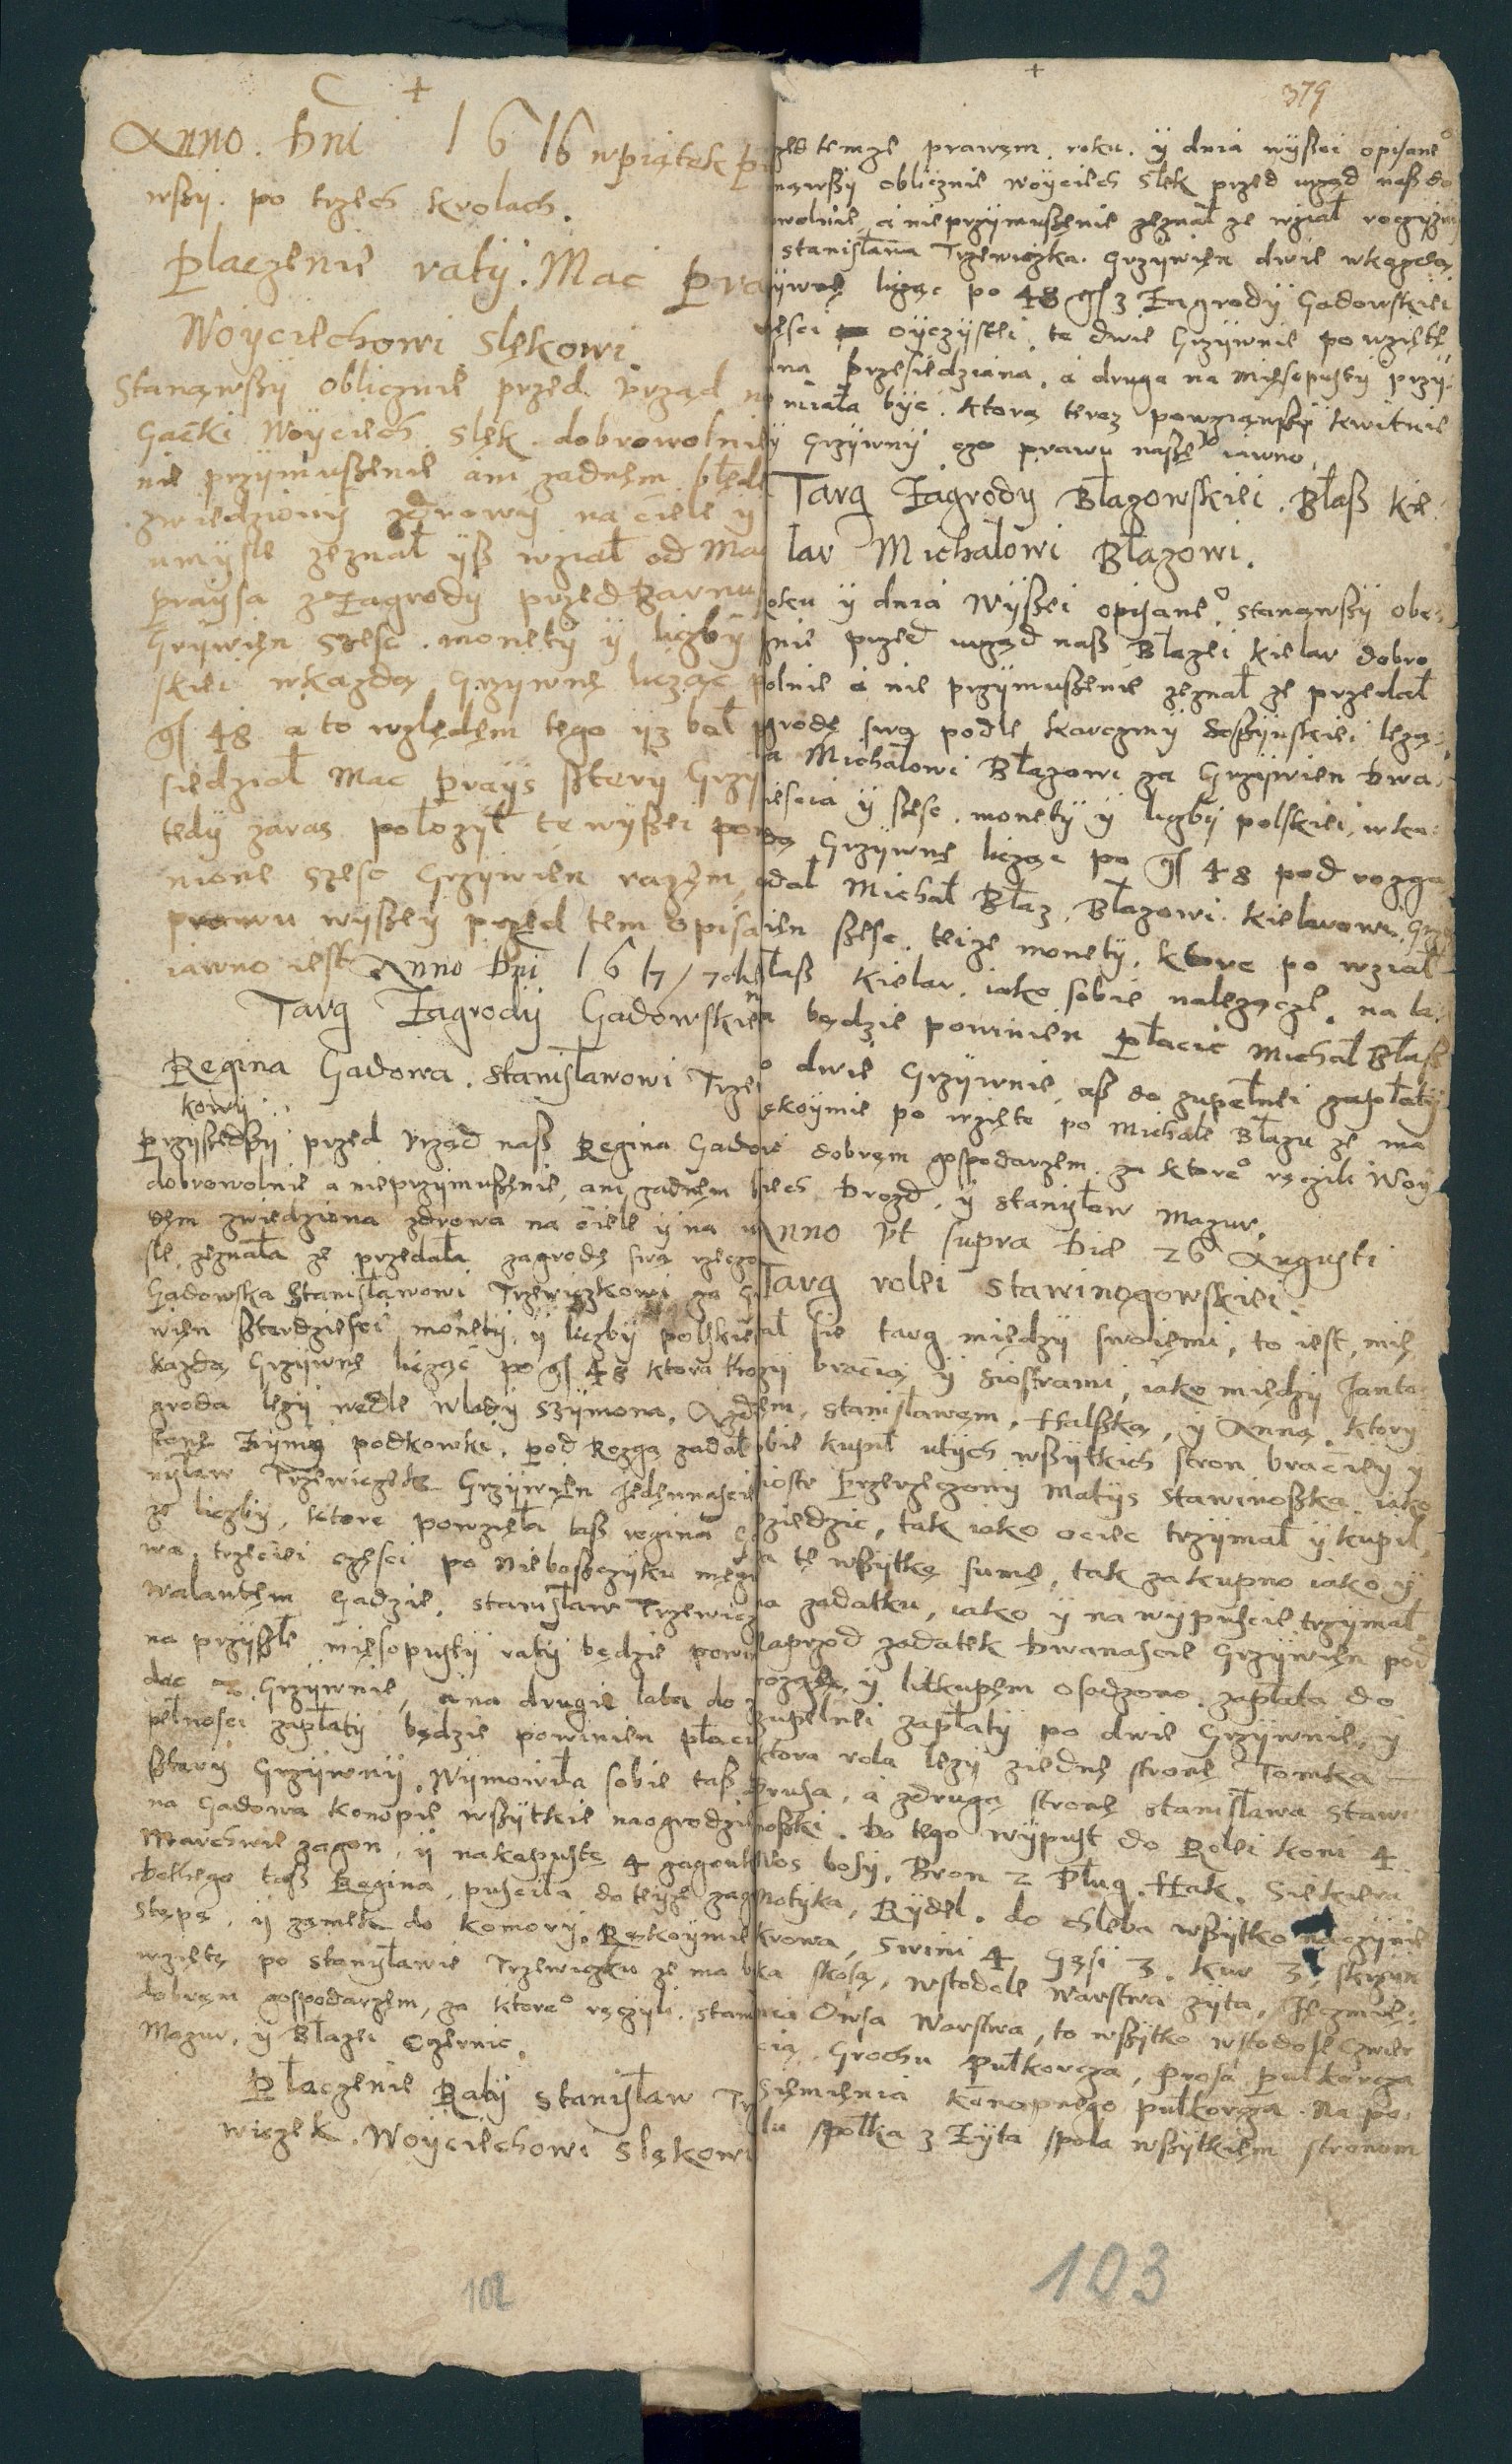 C +
Anno. Dni 1616 wpiątek pi
wßÿ. po trzech Krolach.
Płaczenie ratÿ. Mac Pra
Woÿciechowi Slękowi.
Stanąwßÿ oblicznie przed Vrząd na
Gaćki Woÿciech Slęk dobrowolnie
nie przÿmußenie ani zadnem błęde
zwiedzionÿ zdrowÿ na ciele ÿ
umÿsle zeznał ÿß wział od Mac
Praÿsa z Zagrodÿ przed
Grÿwien szesc. monetÿ ÿ liczbÿ
skiei wkazdą Grzÿwnę licząc p
gß 48 a to względem tego ÿz bał
siedział Mac Praÿs ßterÿ Grzÿ
tedÿ zaras położÿł te wÿßei pom
nione szesc Grzÿwien razem,
prawu wÿßeÿ przed tem opisa
iawno iest Anno Dni 1617
Targ Zagrodÿ Gadowskie
Regina Gadowa. Stanisławowi Trze
kowÿ
Przÿßedßÿ przed Vrząd naß Regina Gadow
dobrowolnie a nieprzÿmußenie, ani zadnem b
dem zwiedziona zdrowa na ciele ÿ na u
sle, zeznała ze przedała zagrodę swą rzeczo
Gadowska Stanisławowi Trzewiczkowi za G
wien ßterdziesci monetÿ, ÿ liczbÿ polskie
kazdą Grzÿwnę licząć po gß 48 ktora
groda lezÿ wedle Władÿ Szÿmona. A zd
stonę Zÿmą podkowkę. pod Rozgą zadał
nisław Trzewiczek Grzÿwien Jedennascie
ze liczbÿ, ktore powzięła taß regina
wa trzeciei częsci po Nieboßczÿku męz
Walantem Gadzie, Stanisław Trzewicz
na przÿßłe mięsopustÿ ratÿ będzie powi
dac 2. Grzÿwnie, a na drugie lata do z
pełnosci zapłatÿ będzie powinien płaci
ßterÿ Grzÿwnÿ. Wÿmowiła sobie taß
na Gadowa konopie wßÿtkie naogrodzi
Marchwie zagon, ÿ nakapustę 4 zagonk
Do tego taß Regina, puscila do teÿze zag
Stępę, ÿ zamek do komorÿ. Rękoÿmie
wzięte po Stanisławie Trzewiczku ze ma b
dobrem gospodarzem, za ktorego ręczyli. Stan
Mazur, ÿ Błazei Czernic.
Płaczenie Ratÿ Stanisław Tr
wiczek. Woÿciechowi Slękowi
+
379
zed temze prawem, roku. ÿ dnia wÿßei opisane°
nąwßÿ oblicznie Woÿciech Slek przed urząd naß do
wolnie, a nieprzÿmußenie zeznał ze wział
Stanisława Trzewiczka. Grzÿwien dwie wkazdą
ÿwnę licząc po 48 gß z Zagrodÿ Gadowskiei
ęsci oÿczÿstei, te dwie Grzÿwnie powzięte
dna Przesiedziana, a druga na Mięsopustÿ przÿ
miała bÿc. ktorą teraz powziąwßÿ kwituie
ÿ Grzÿwnÿ czo prawu naße° iawno.
Targ Zagrody Błazowskiei. Błaß Kie
lar Michałowi Błazowi.
oku ÿ dnia wÿßei opisane° stanąwßÿ obe
znie przed urząd naß Błazei Kielar dobro
olnie a nie przÿmußenie zeznał ze przedał
grodę swą podle karczmÿ leżą
a Michałowi Błazowi za Grzÿwien Dwa
iescia ÿ ßesc. monetÿ ÿ liczbÿ polskiei, wka
dą Grzÿwnę licząc po gß 48 pod rozgą
adał Michał Błaz, Błazowi Kielarowi, Grzÿ
ien ßesc. teize monetÿ. ktore po wział
łaß Kielar, iako sobie nalezączę. na la
a będzie powinien Płacic Michał Błaß
o dwie Grzÿwnie, aß do zupełnei zapłatÿ
ękoÿmie po wzięte po Michale Błazu ze ma
dobrem gospodarzem, za ktore° ręczili Woÿ
iech Drozd, ÿ Stanisław Mazur.
Anno Vt supra Die 26 Augusti
Targ rolei Stawinogowskiei.
ał się targ międzÿ swoiemi, to iest, mię
zÿ bracią ÿ siostrami, iako międzÿ Janta
em, Stanisławem, Halßką, ÿ Anną, ktorÿ
obie kupił utÿch wßÿtkich stron braciei ÿ
iostr Przerzeczonÿ Matÿs Stawinoßka iako
ziedzic, tak iako ociec trzÿmał ÿ kupił,
a te wßÿtkę sumę, tak za kupno iako ÿ
na zadatku, iako ÿ na wÿpuscie trzÿmał
aprzod zadatek Dwanascie Grzÿwien pod
rozgą, ÿ litkupem osądzono. zapłata do
zupełnei zapłatÿ po dwie Grzÿwnie, ÿ
ktora rola lezÿ ziednę stronę Tomka
Prusa, a zdrugą stronę Stanisława Stawi
noßki. Do tego wÿpust do Rolei koni 4
Wos bosÿ, Bron 2 Pług. Hak. Siekiera
Motÿka, Rÿdel. do chleba wßÿtko naczÿnie
krowa, Swini 4 Gęsi 3. Kur 3, skrzÿn
ka skosą, wstodole Warstwa zÿta, Jęczmie
nia Owsa Warstwa, to wßÿtko wstodole Czwer
cią. Grochu Pułkorcza, Prosa Pułkorcza
Siemienia konopnego pułkorcza. Na po
lu społka z Zÿta społa wßÿtkiem stronom
102
103